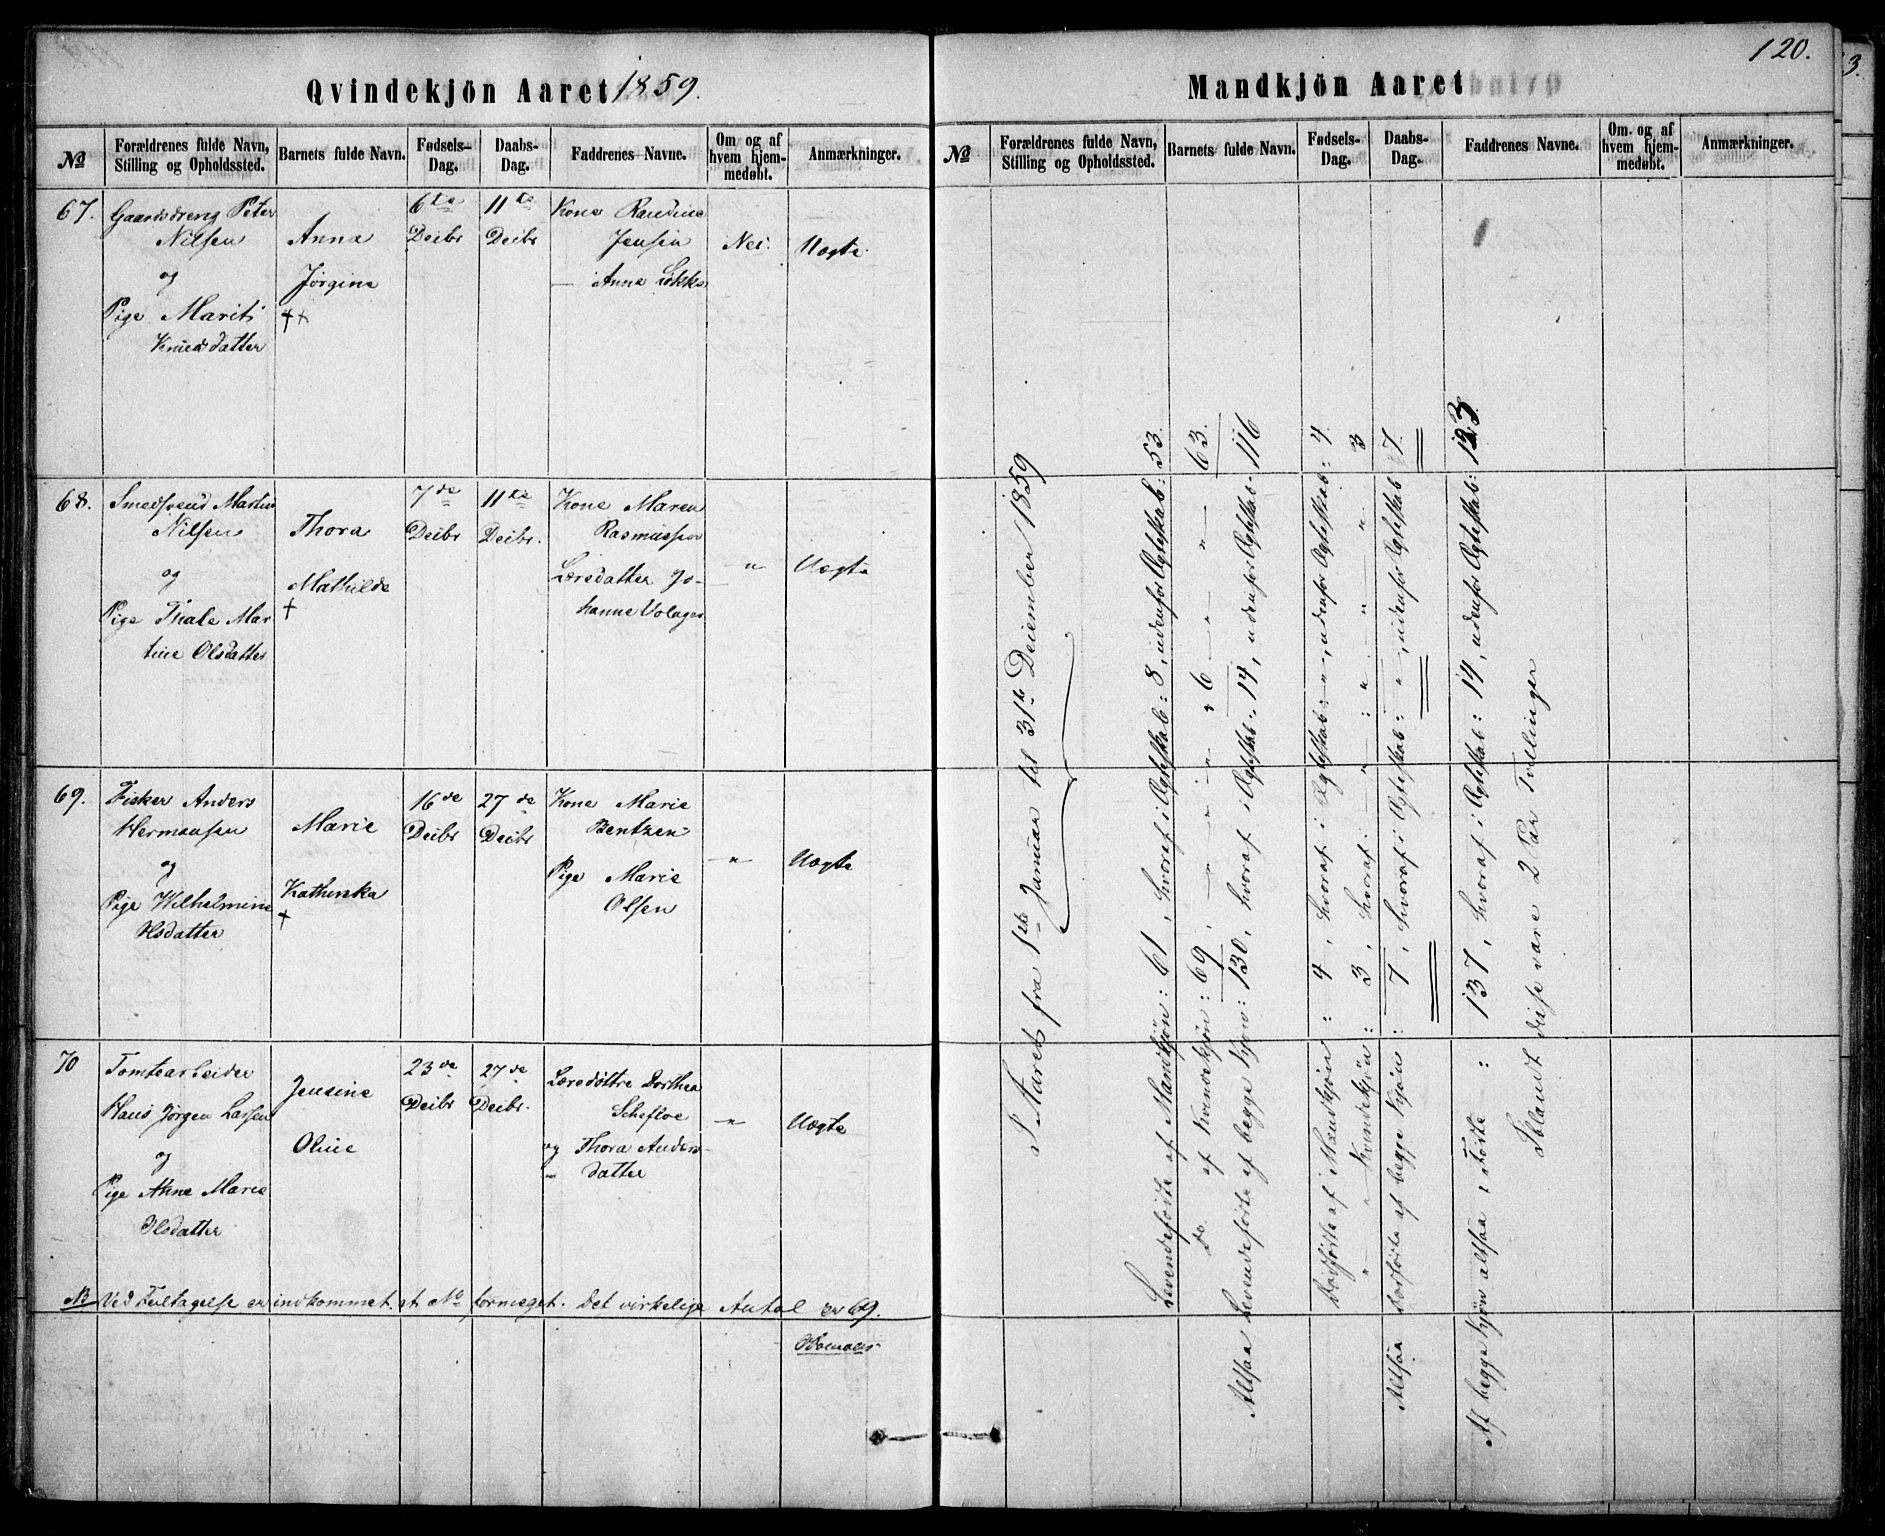 120.
3.
Qvindekjön Aaret 1859.
No
Forældrenes fulde Navn, Stilling og Opholdssted.
Barnets fulde Navn.
Fødsels-Dag.
Daabs-Dag.
Faddrenes Navne.
Om og af hvem hjemmedøbt.
Anmærkninger.
67.
Gaardsdreng Peter
Nilsen
og
Pige Marit
Knudsdatter
Anna
Jørgine
††
6te
Decbr
11te
Decbr
Kone Randine
Jensen
— Anna Løkke
Nei.
Uægte
68.
Smedsvend Martin
Nilsen
og
Pige Thale Mar
tine Olsdatter
Thora
Mathilde
†
7de
Decbr
11te
Decbr.
Kone Maren
Rasmussen
Læredatter Jo-
hanne
"
Uægte
69.
Fisker Anders
Hermansen
og
Pige Wilhelmine
Olsdatter
Marie
Kathinka
†
16de
Decbr
27de
Decbr
Kone Marie
Bentzen
Pige Marie
Olsen
— " —
Uægte
70
Tomtearbeider
Hans Jørgen Larsen
og
Pige Anne Marie
Olsdatter
Jensine
Oline
23de
Decbr
27de
Decbr.
Læredøttre Dorthea
Schefloe
og Thora Anders-
datter
"
Uægte
NB Ved Feiltagelse er indkommet et No formeget. Det virkelige Antal er 69.
Mandkjön Aaret
No
Forældrenes fulde Navn, Stilling og Opholdssted.
Barnets fulde Navn.
Fødsels-Dag.
Daabs-Dag.
Faddrenes Navne.
Om og af hvem hjemmedøbt.
Anmærkninger.
I Aaret fra 1ste Januar til 31te December 1859
Levendefødte af Mandkjøn: 61, hvoraf i Ægteskab: 8, udenfor Ægteskab: 53.
Do. af Kvindekjøn: 69, — " — " 6 — " — " — 63.
Altsaa Levendefødte af begge Kjøn: 130, hvoraf i Ægteskab: 14, udenfor Ægteskab: 116
Dødfødte af Mandkjøn: 4, hvoraf i Ægteskab: " —, udenfor Ægteskab: 4
" — " Kvindekjøn: 3, hvoraf: " — : " " — " 3
Altsaa dødfødte af begge Kjøn: 7, hvoraf i Ægteskab: ", udenfor Ægteskab 7.
Af begge Kjøn altsaa fødte: 137, hvoraf i Ægteskab: 14, udenfor Ægteskab: 123
Iblandt disse vare 2 Par Tvillinger